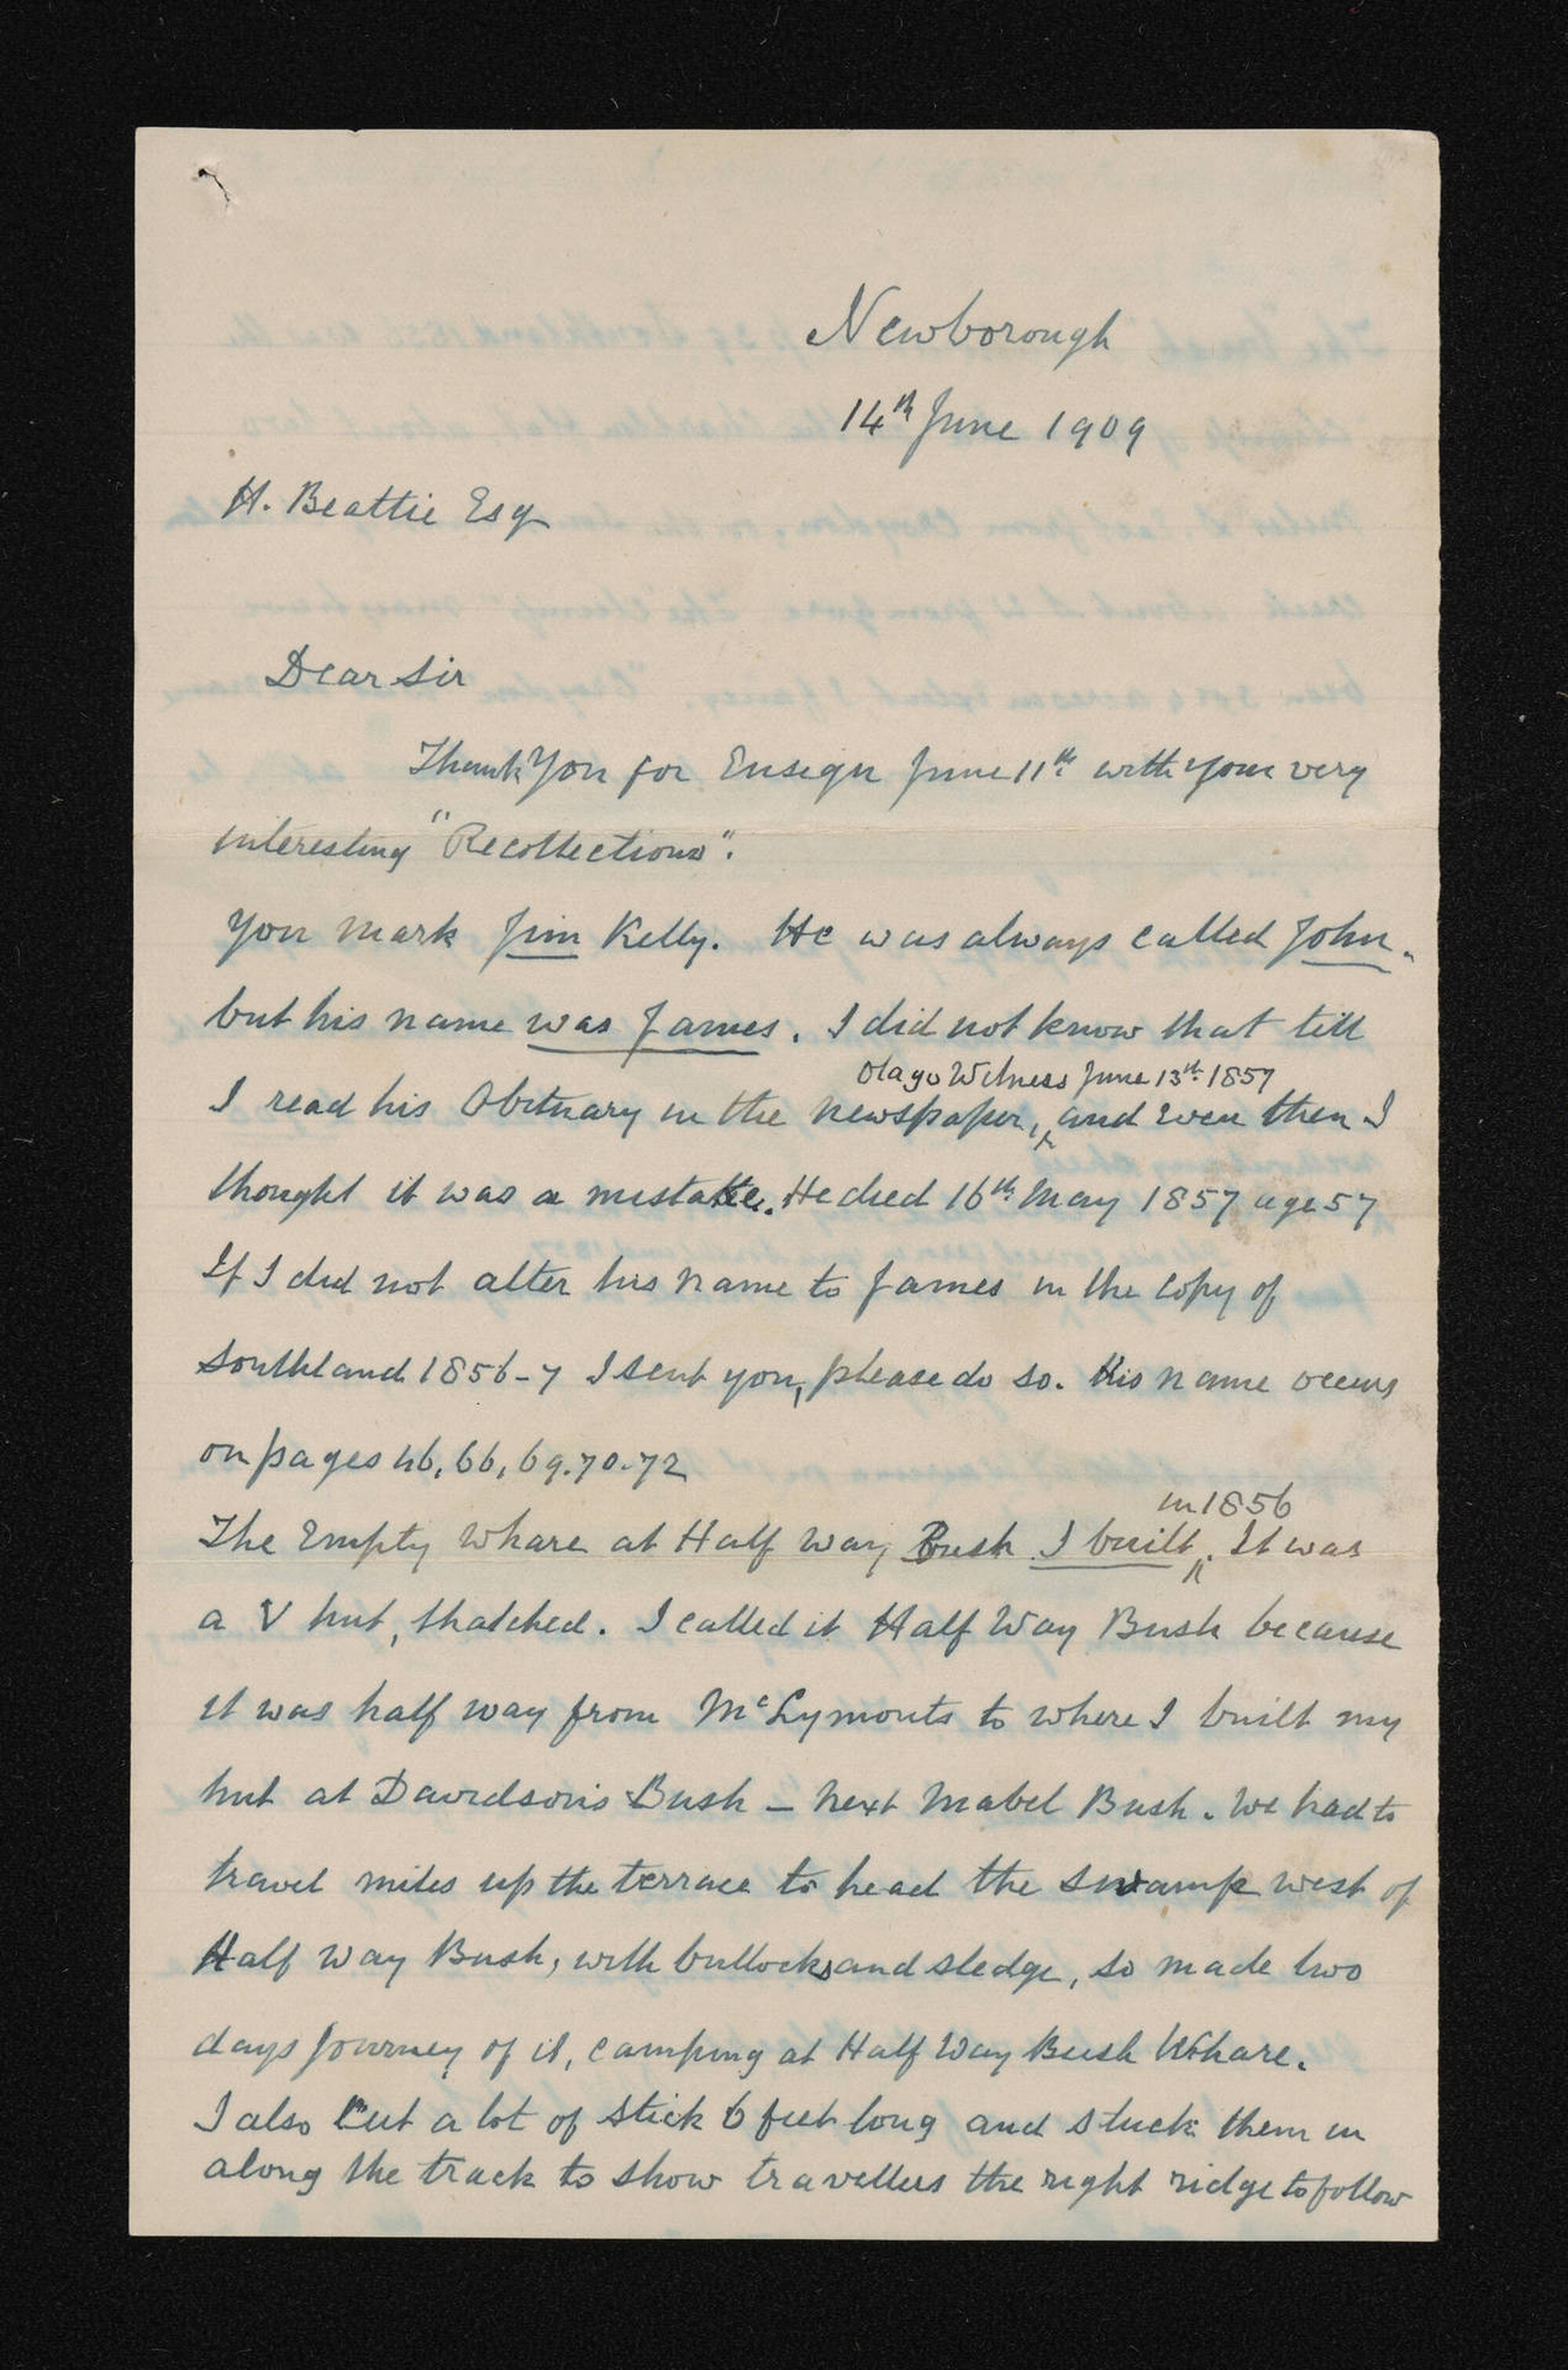 Newborough
14th June 1909
H. Beattie Esq
Dear Sir
Thank You for Ensign June 11th with your very
interesting "Recollections".
You mark Jim Kelly. He was always called John.
but his name was James. I did not know that till
Otago Witness June 13th 1857
I read his Obituary in the newspaper, and even then I
thought it was a mistake. He died 16th May 1857 age 57
If I did not alter his name to James in the copy of
Southland 1856-7 I sent you, please do so. His name occurs
on pages 46, 66, 69. 70. 72
in 1856
The Empty Whare at Half Way Bush I built. It was
a V hut, thatched. I called it Half Way Bush because
it was half way from McLymonts to where I built my
hut at Davidson's Bush - next Mabel Bush. We had to
travel miles up the terrace to head the swamp west of
Half Way Bush, with bullocks and sledge, so made two
days journey of it, camping at Half Way Bush Whare.
I also Cut a lot of stick 6 feet long and stuck them in
along the track to show travellers the right ridge to follow